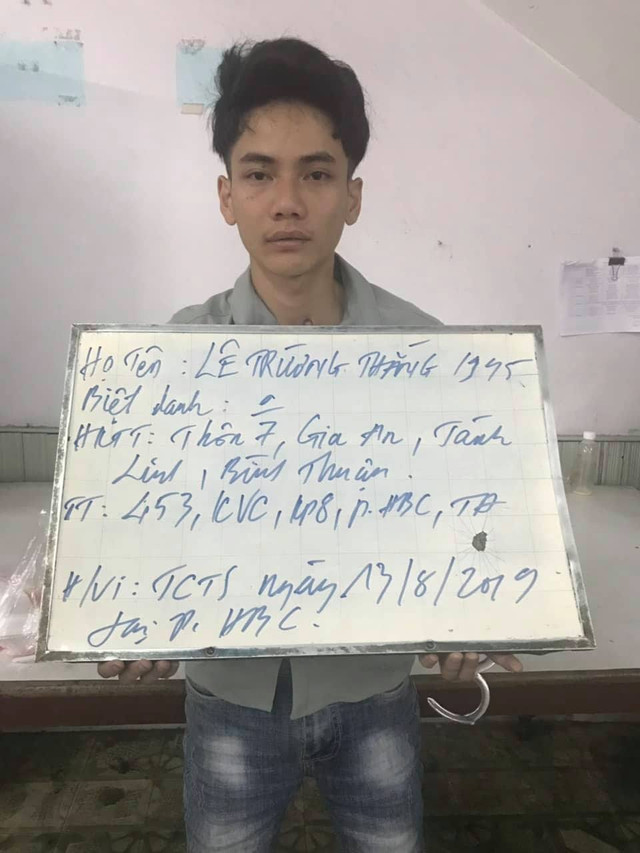 Họ Tên : LÊ TRƯƠNG THẮNG 1995
Biệt danh : 0
HKTT: Thôn 7, Gia An, Tánh
Linh, Bình Thuận.
TT: 453, KVC, KP8, P. HBC, TĐ
H/Vi: TCTS ngày 13/8/2019
tại P. HBC.